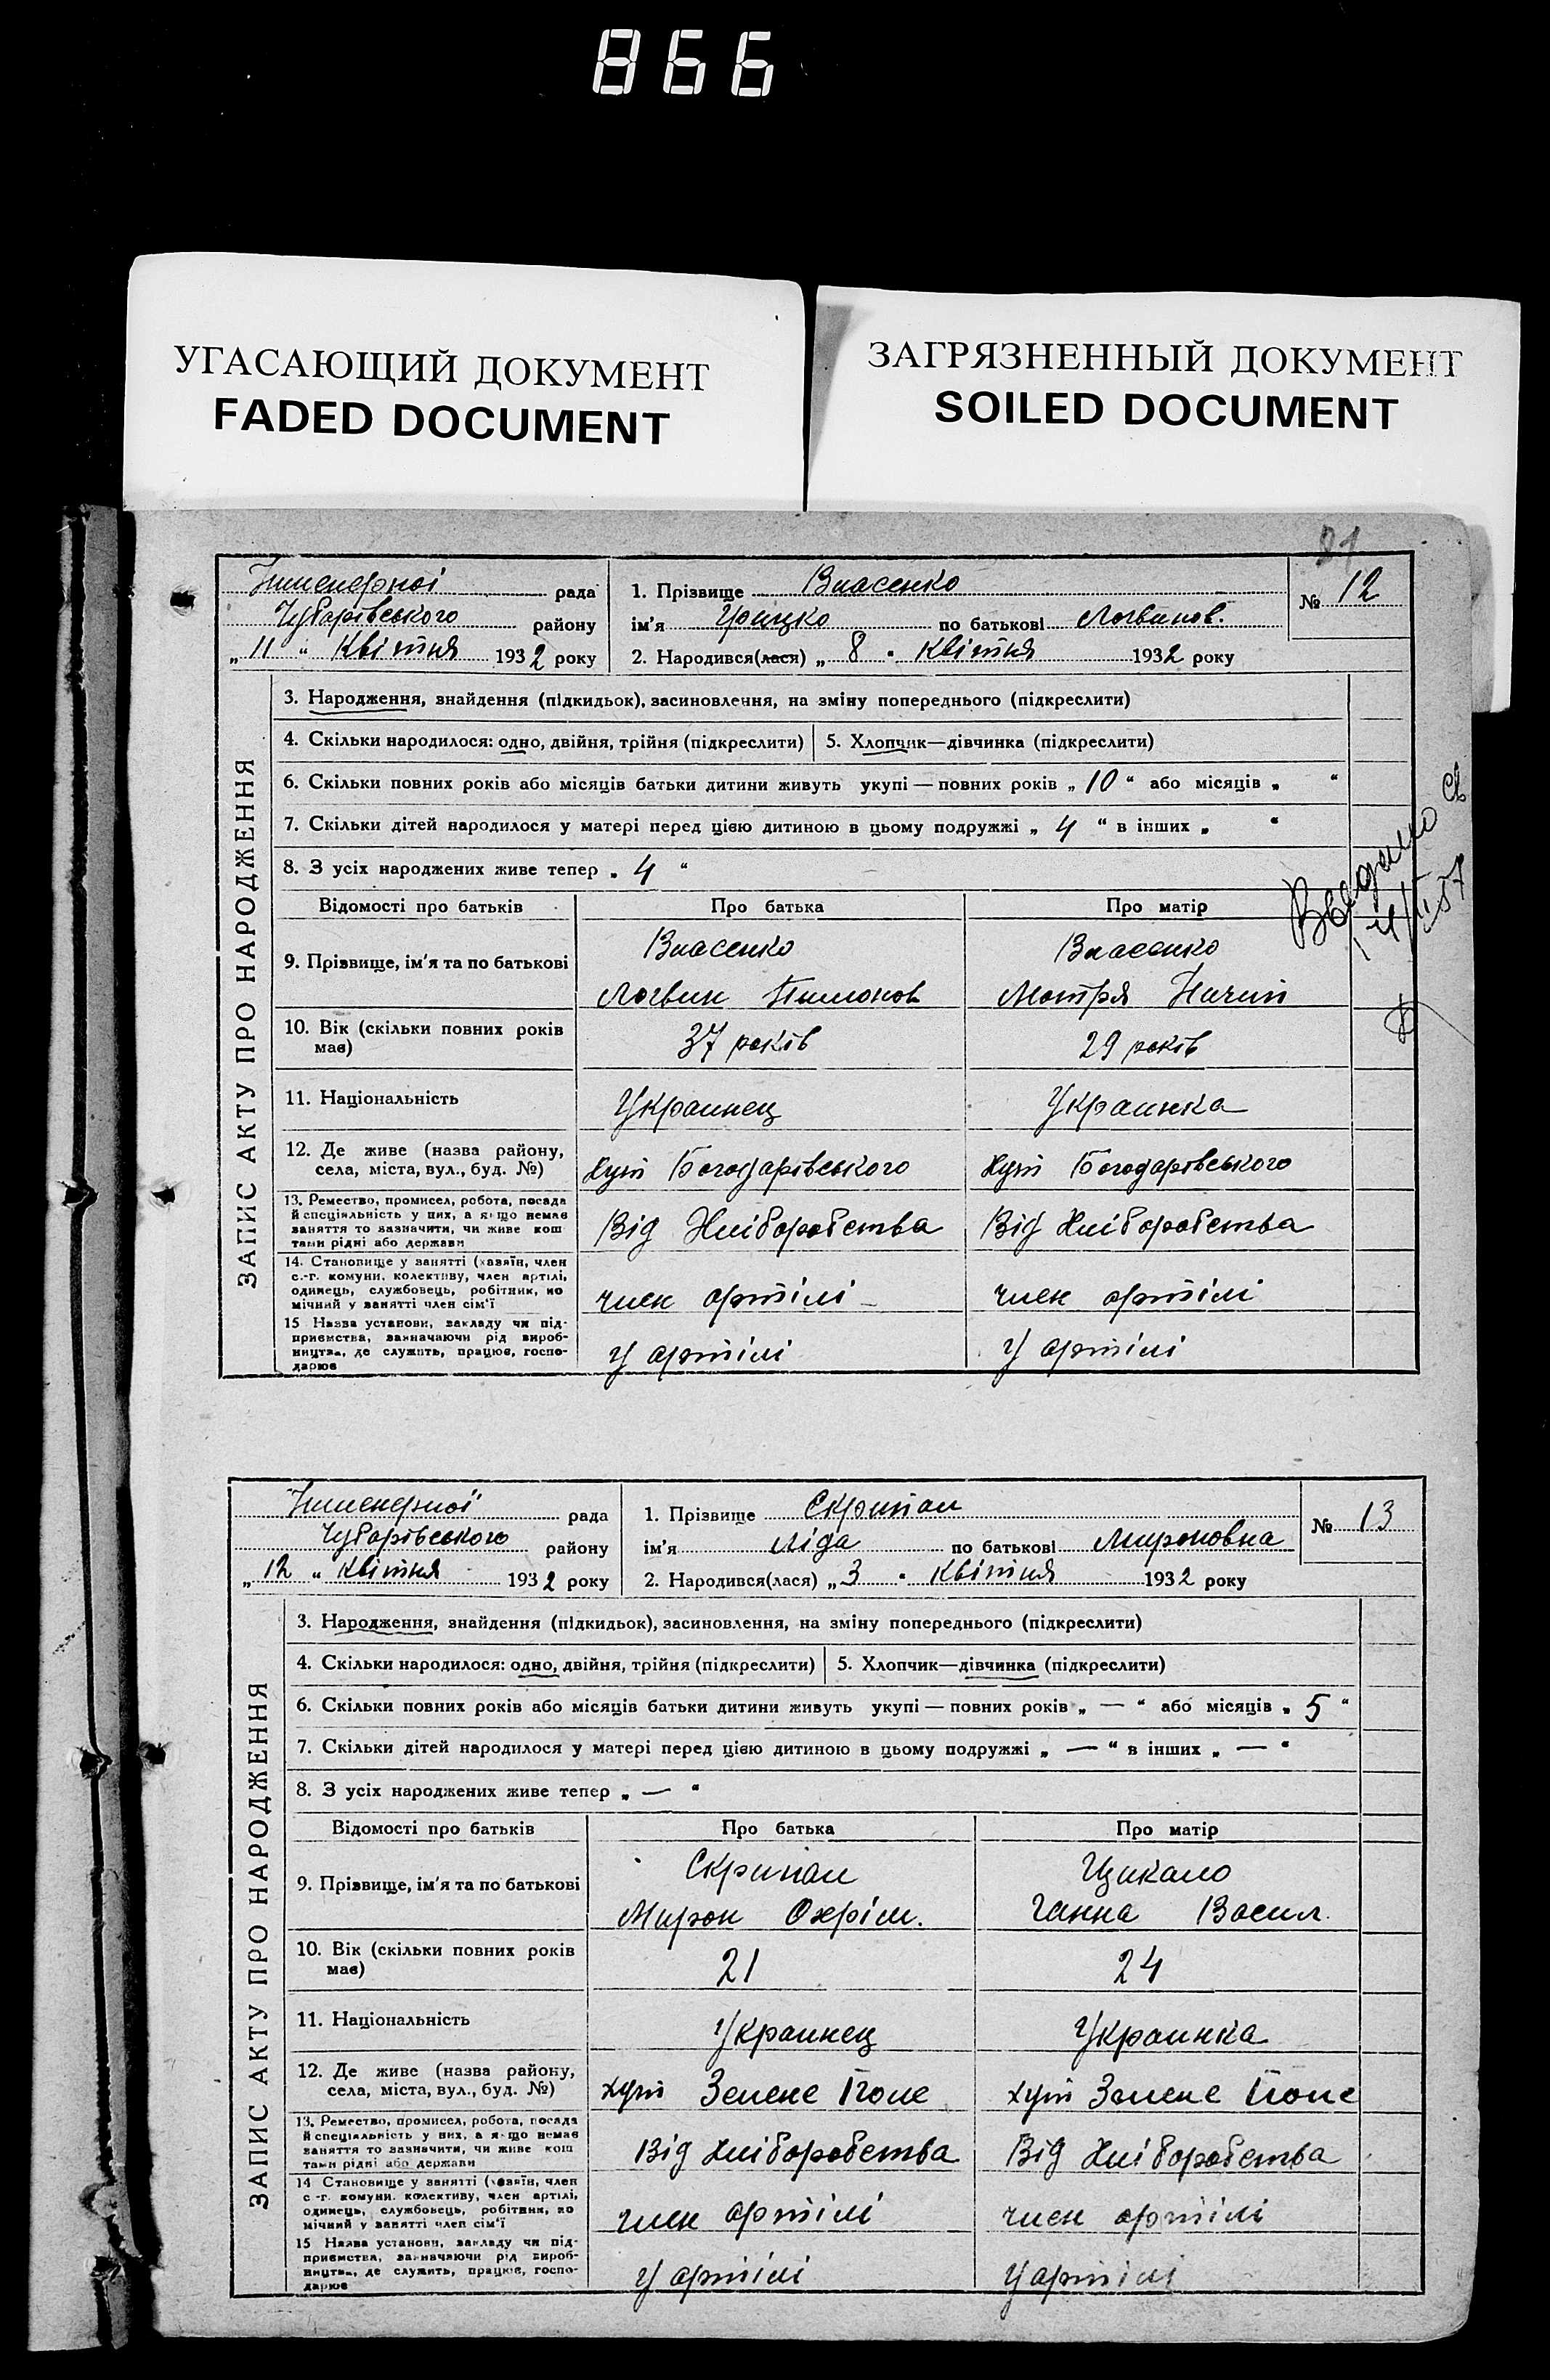 866
УГАСАЮЩИЙ ДОКУМЕНТ
FADED DOCUMENT
ЗАГРЯЗНЕННЫЙ ДОКУМЕНТ
SOILED DOCUMENT
ЗАПИС АКТУ ПРО НАРОДЖЕННЯ
рада
Чубарівського району
„ 11 “ Квітня 1932 року
1. Прізвище Власенко
ім'я Грицко по батькові Логвинов.
2. Народився(лася) „ 8 “ Квітня 1932 року
№ 12
3. Народження, знайдення (підкидьок), засиновлення, на зміну попереднього (підкреслити)
4. Скільки народилося: одно, двійня, трійня (підкреслити) 5. Хлопчик—дівчинка (підкреслити)
6. Скільки повних років або місяців батьки дитини живуть укупі — повних років „ 10 “ або місяців „ “
7. Скільки дітей народилося у матері перед цією дитиною в цьому подружжі „ 4 “ в інших „ “
8. З усіх народжених живе тепер „ 4 “
Відомості про батьків Про батька Про матір
9. Прізвище, ім'я та по батькові
Власенко
Логвин
Власенко
Мотря
10. Вік (скільки повних років має)
37 років
29 років
11. Національність
Украинец
Украинка
12. Де живе (назва району, села, міста, вул., буд. №)
хут Богодарівського
хут Богодарівського
13. Ремество, промисел, робота, посада
й спеціяльність у них, а якщо немає
заняття то зазначити, чи живе кош
тами рідні або держави
Від Хліборобства
Від Хліборобства
14. Становище у занятті (хазяїн, член
с.-г. комуни, колективу, член артілі,
одинець, службовець, робітник, по
мічний у занятті член сім'ї
член артілі
член артілі
15 Назва установи, закладу чи під-
приємства, зазначаючи рід вироб-
ництва, де служить, працює, госпо-
дарює
У артілі
У артілі
ЗАПИС АКТУ ПРО НАРОДЖЕННЯ
рада
Чубарівського району
„ 12 “ Квітня 1932 року
1. Прізвище Скрипай
ім'я Ліда по батькові Мироновна
2. Народився(лася) „ 3 “ Квітня 1932 року
№ 13
3. Народження, знайдення (підкидьок), засиновлення, на зміну попереднього (підкреслити)
4. Скільки народилося: одно, двійня, трійня (підкреслити) 5. Хлопчик—дівчинка (підкреслити)
6. Скільки повних років або місяців батьки дитини живуть укупі — повних років „ — “ або місяців „ 5 “
7. Скільки дітей народилося у матері перед цією дитиною в цьому подружжі „ — “ в інших „ — “
8. З усіх народжених живе тепер „ — “
Відомості про батьків Про батька Про матір
9. Прізвище, ім'я та по батькові
Скрипай
Мирон Охрім.
Цикало
Ганна Васил.
10. Вік (скільки повних років має)
21
24
11. Національність
Украинец
Украинка
12. Де живе (назва району, села, міста, вул., буд. №)
хут Зелене Поле
хут Зелене Поле
13. Ремество, промисел, робота, посада
й спеціяльність у них, а якщо немає
заняття то зазначити, чи живе кош
тами рідні або держави
Від Хліборобства
Від Хліборобства
14 Становище у занятті (хазяїн, член
с-г. комуни, колективу, член артілі,
одинець, службовець, робітник, по
мічний у занятті член сім'ї
член артілі
член артілі
15 Назва установи, закладу чи під-
приємства, зазначаючи рід вироб-
ництва, де служить, працює, госпо-
дарює
У артілі
У артілі